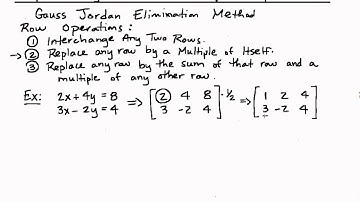 Gauss Jordan Elimination Method
Row Operations:
① Interchange Any Two Rows.
→ ② Replace any row by a Multiple of Itself.
③ Replace any row by the sum of that row and a
multiple of any other row.
Ex: 2x + 4y = 8 ⇒ [ 2 4 8 ] · 1/2 ⇒ [ 1 2 4 ]
3x - 2y = 4 [ 3 -2 4 ] [ 3 -2 4 ]